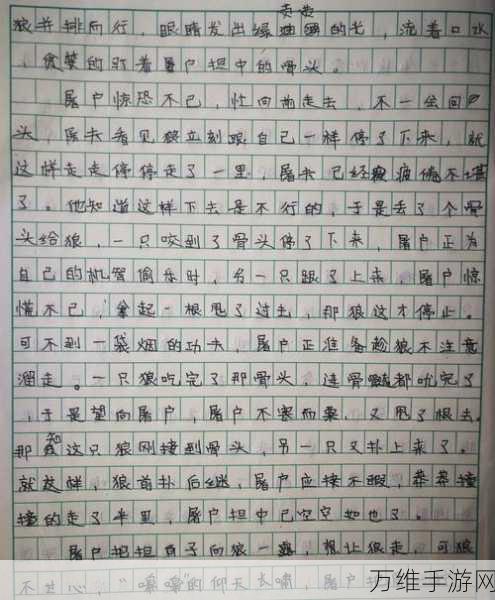 贪婪
狼并排而行，眼睛发出绿油油的光，流着口水
，贪婪的盯着屠户担中的骨头。
屠户惊恐不已，忙向前走去，不一会回
头，屠夫看见狼立刻跟自己一样停了下来，就
这样走走停停走了一里，屠夫已经疲惫不堪
了。他知道这样下去是不行的，于是丢了个骨
头给狼，一只咬到了骨头停了下来，屠户正为
自己的机智偷乐时，另一只跟了上来，屠户惊
慌不已，拿起一根甩了过去，那狼这才停止。
可不到一袋烟的功夫，屠户正准备趁狼不注意
溜走。一只狼吃完了那骨头，连骨髓都吮完了
，于是望向屠户，屠户不寒而栗，又甩了根去。
那知这只狼刚接到骨头，另一只又扑上来了。
就这样，狼首扑后继，屠户应接不暇，莽莽撞
撞的走了半里，屠户担中已空空如也了。
屠户把担子向狼一露，想让狼走，可狼
不甘心，“嗥嗥”的仰天长啸，屠户
万维手游网